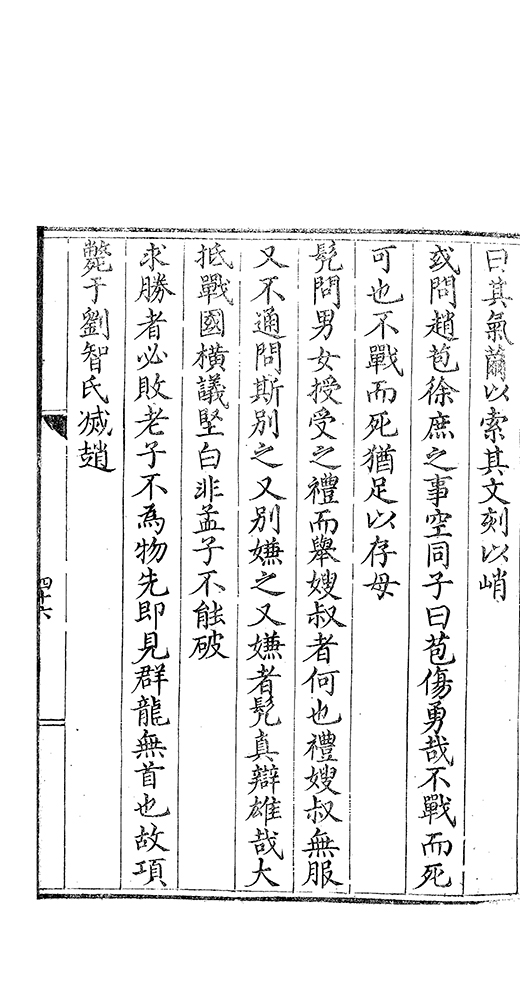 曰其氣薾以索其文刻以峭
或問趙苞徐庶之事空同子曰苞傷勇哉不戰而死
可也不戰而死猶足以存母
髡問男女授受之禮而舉嫂叔者何也禮嫂叔無服
又不通問斯别之又别嫌之又嫌者髡真辯雄哉大
抵戰國橫議堅白非孟子不能破
求勝者必敗老子不為物先即見群龍無首也故項
斃于劉智氏滅趙
四十六